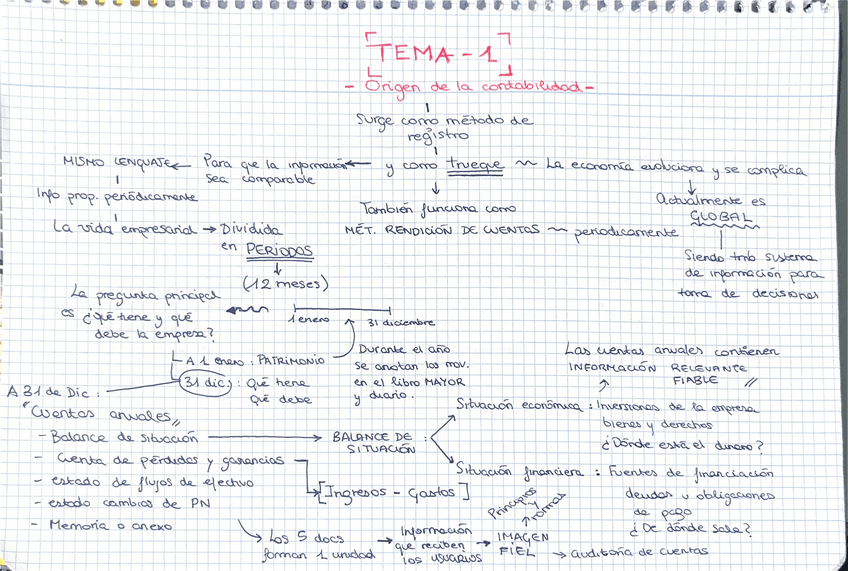 TEMA-1
- Origen de la contabilidad -
Surge como método de
registro
MISMO LENGUAJE ← Para que la información ← y como trueque ~ La economía evoluciona y se complica
sea comparable
Info prop. periódicamente
También funciona como
Actualmente es
GLOBAL
La vida empresarial → Dividida
en PERIODOS
MÉT. RENDICIÓN DE CUENTAS ~ periódicamente
Siendo tmb sistema
de información para
toma de decisiones
(12 meses)
La pregunta principal
es ¿Qué tiene y qué
debe la empresa?
1 enero
31 diciembre
A 1 enero: PATRIMONIO
31 dic: Qué tiene
Qué debe
Durante el año
se anotan los mov.
en el libro MAYOR
y diario.
Las cuentas anuales contienen
INFORMACIÓN RELEVANTE
FIABLE //
A 31 de Dic:
"Cuentas anuales"
- Balance de situación → BALANCE DE
SITUACIÓN :
Situación económica: Inversiones de la empresa
bienes y derechos
¿Dónde está el dinero?
- Cuenta de pérdidas y ganancias
[Ingresos - Gastos]
Situación financiera: Fuentes de financiación
deudas u obligaciones
de pago
¿De dónde sale?
- estado de flujos de efectivo
- estado cambios de PN
- Memoria o anexo
Los 5 docs
forman 1 unidad
→ Información
que reciben
los USUARIOS
→ IMAGEN
FIEL
Principios
y
normas
→ auditoría de cuentas